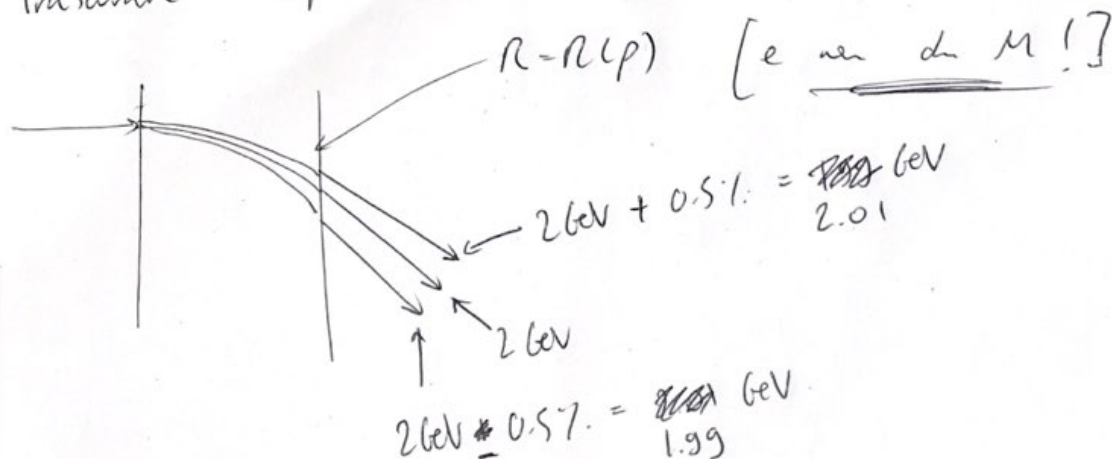 R=R(p) [e non da M!]
2 GeV + 0.5% = GeV
2.01
2 GeV
2 GeV - 0.5% = GeV
1.99